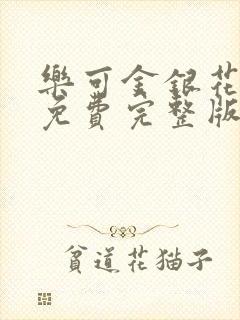 樂可金銀花
免費完整版
貧道花猫子